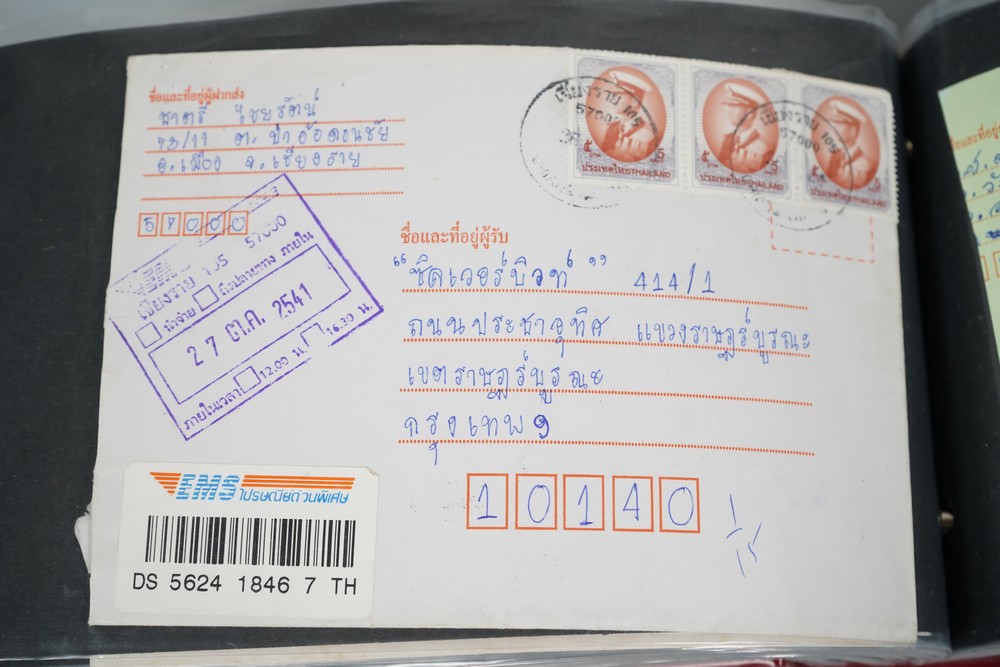 ชื่อและที่อยู่ผู้ฝากส่ง
ชาตรี ไชยรัตน์
73/11 ต. ป่าอ้อดอนชัย
อ.เมือง จ.เชียงราย
57000
เชียงราย 105
57000
เชียงราย 105
57000
๕ 5
ประเทศไทยTHAILAND
๕ 5
ประเทศไทยTHAILAND
๕ 5
ประเทศไทยTHAILAND
เชียงราย 105 57000
นำจ่าย ถึงปลายทาง ภายใน
27 ต.ค. 2541
ภายในเวลา 12.00 น. 16.30 น.
ชื่อและที่อยู่ผู้รับ
"ซิลเวอร์บิวท์" 414/1
ถนนประชาอุทิศ แขวงราษฎร์บูรณะ
เขตราษฎร์บูรณะ
กรุงเทพฯ
10140
EMS ไปรษณีย์ด่วนพิเศษ
DS 5624 1846 7 TH